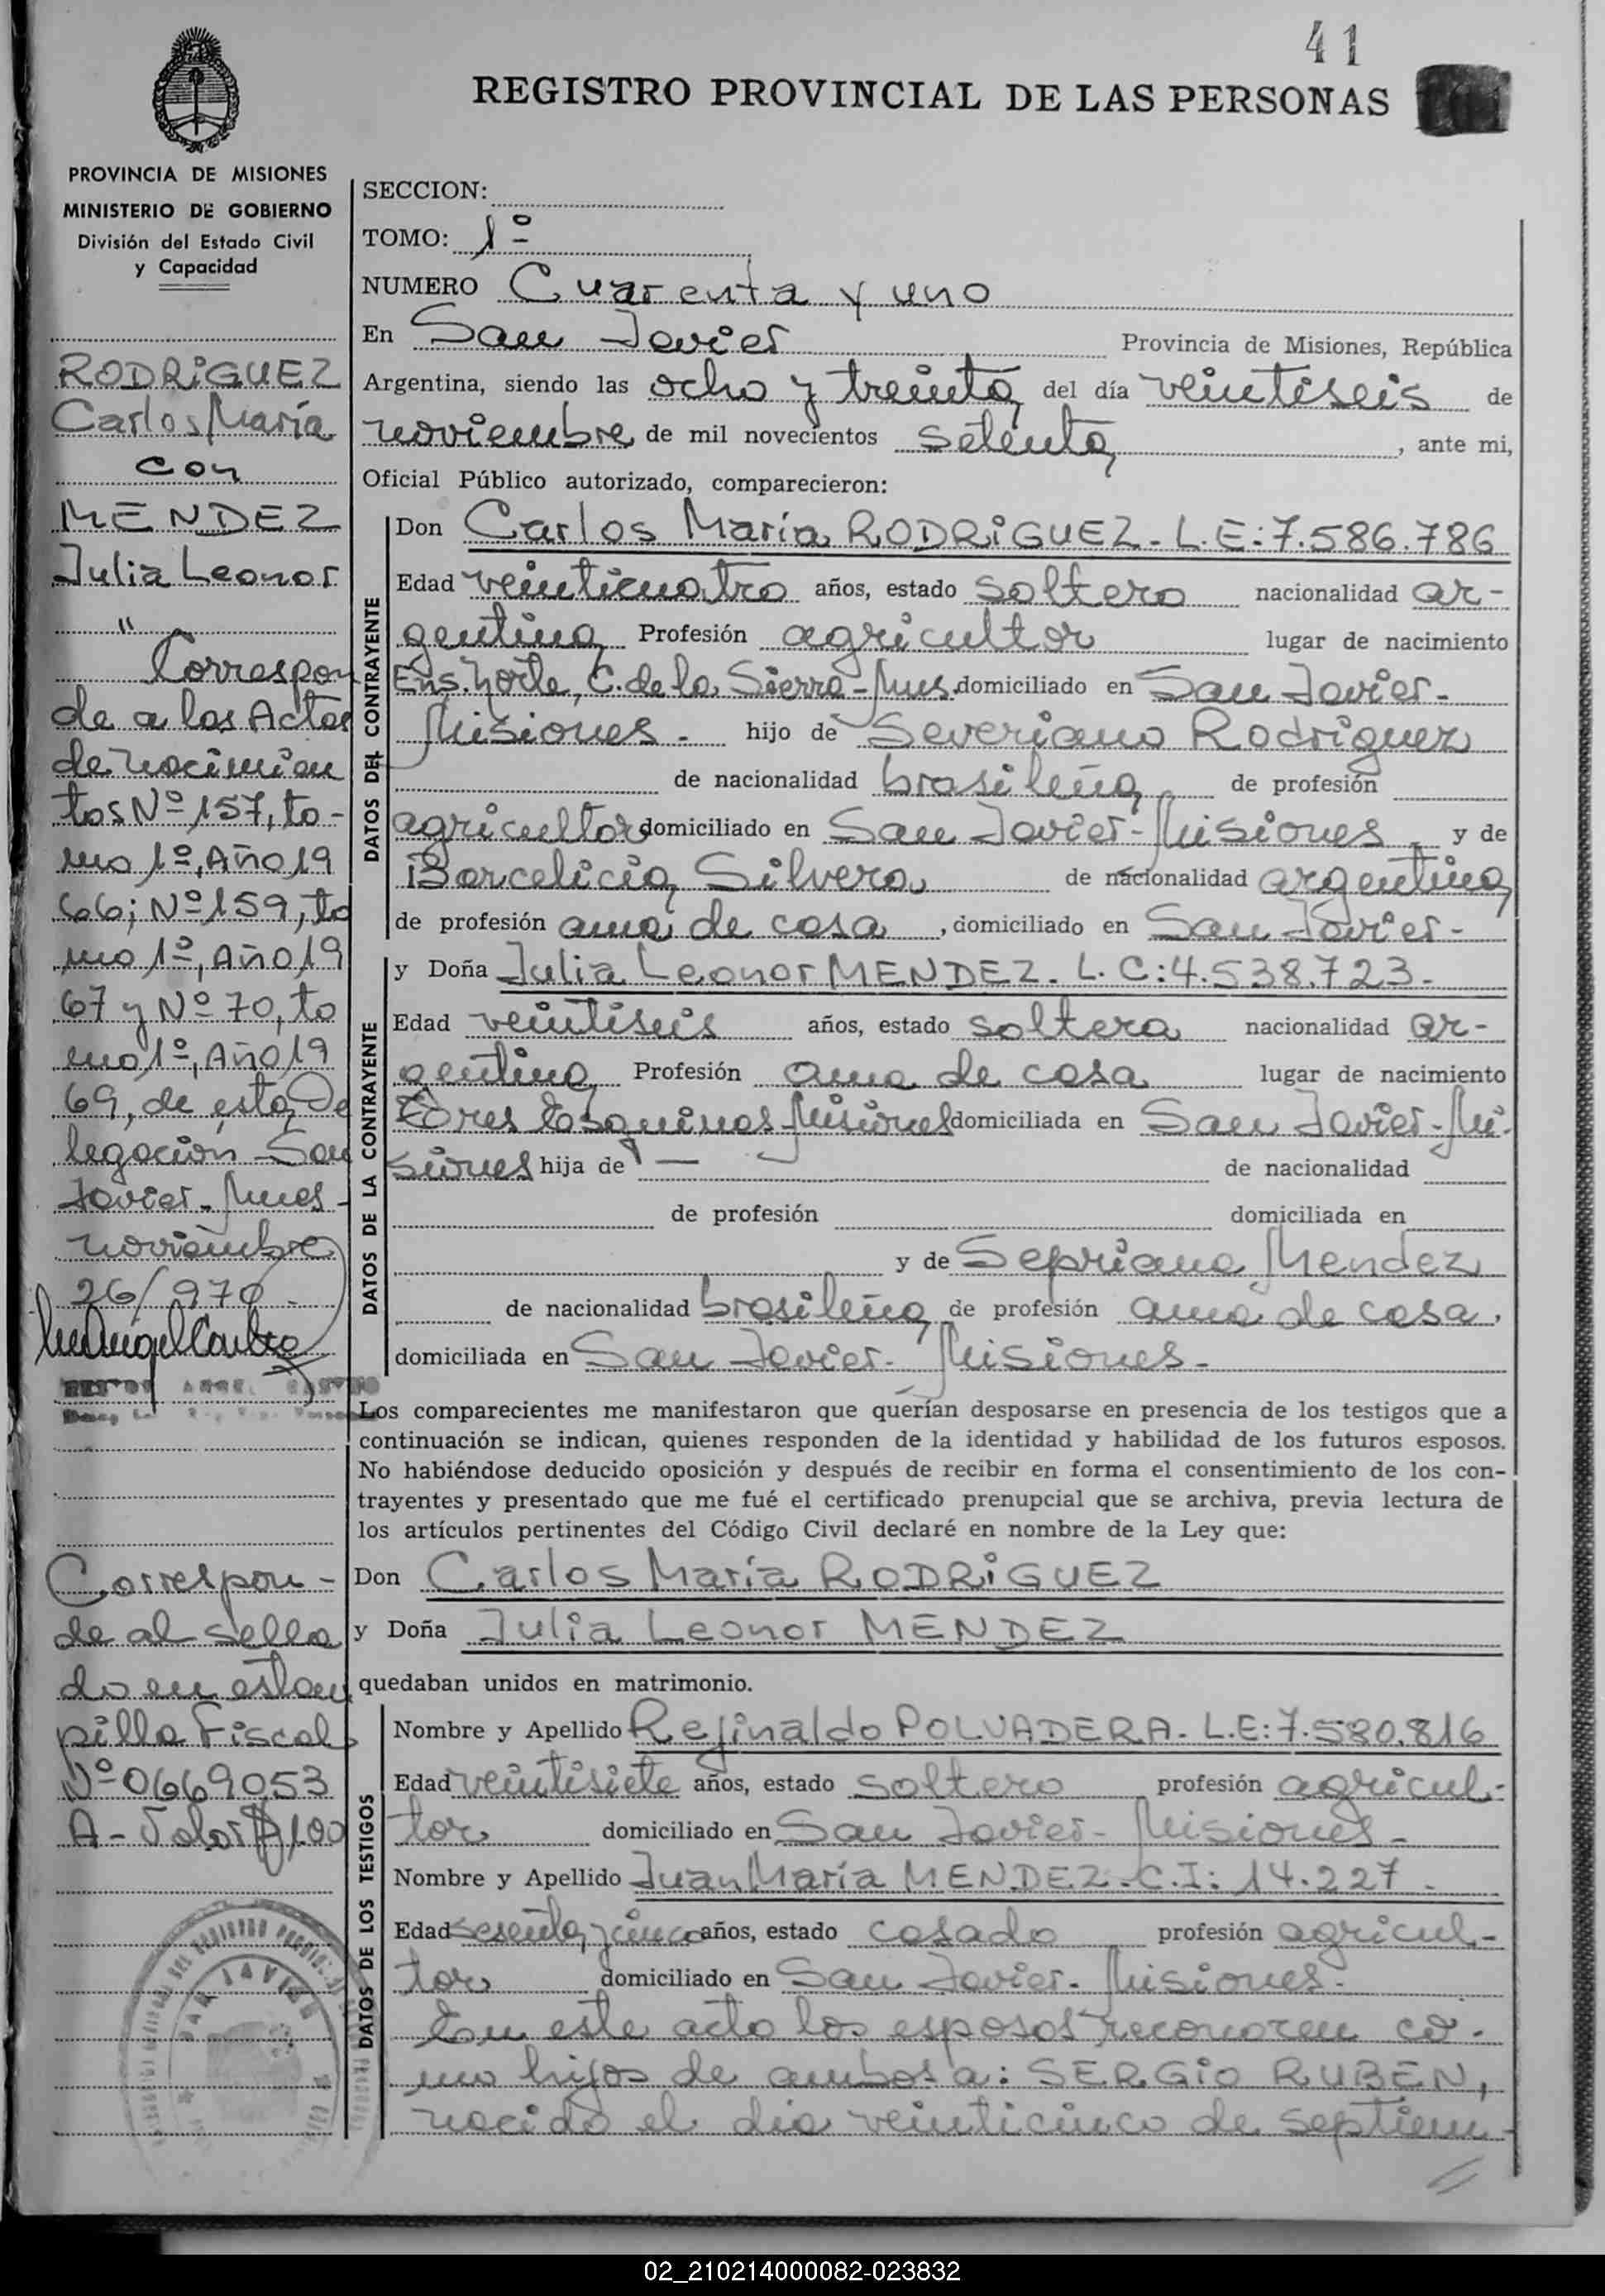 41
REGISTRO PROVINCIAL DE LAS PERSONAS
PROVINCIA DE MISIONES
MINISTERIO DE GOBIERNO
División del Estado Civil
y Capacidad
RODRiGUEZ
Carlos María
con
MENDEZ
Julia Leonor
"
Correspon
de a las Actas
de nacimien
tos Nº 157, to-
mo 1º, Año 19
66; Nº 159, to
mo 1º, Año 19
67 y Nº 70, to
mo 1º, Año 19
69, de esta De
legación San
Javier - Mnes -
noviembre
26/970 -
Correspon-
de al sella
do en estam
pilla Fiscal
Nº 0669053
A - Valor $ 1.00
SAN JAVIER
SECCION:
TOMO: 1º
NUMERO Cuarenta y uno
En San Javier Provincia de Misiones, República
Argentina, siendo las ocho y treinta del día veintiseis de
noviembre de mil novecientos setenta , ante mi,
Oficial Público autorizado, comparecieron:
DATOS DEL CONTRAYENTE
Don Carlos María RODRiGUEZ - L.E: 7.586.786
Edad veinticuatro años, estado soltero nacionalidad ar-
gentina Profesión agricultor lugar de nacimiento
Ens. Norte, C. de la Sierra - Mnes. domiciliado en San Javier -
Misiones - hijo de Severiano Rodriguez
de nacionalidad brasileña de profesión
agricultor domiciliado en San Javier - Misiones y de
Barcelicia Silvera de nacionalidad argentina
de profesión ama de casa , domiciliado en San Javier -
DATOS DE LA CONTRAYENTE
y Doña Julia Leonor MENDEZ - L. C: 4.538.723 -
Edad veintiseis años, estado soltera nacionalidad ar-
gentina Profesión ama de casa lugar de nacimiento
Tres Esquinas - Misiones domiciliada en San Javier - Mi-
siones hija de — de nacionalidad
de profesión domiciliada en
y de Sepriana Mendez
de nacionalidad brasileña de profesión ama de casa,
domiciliada en San Javier - Misiones -
Los comparecientes me manifestaron que querían desposarse en presencia de los testigos que a
continuación se indican, quienes responden de la identidad y habilidad de los futuros esposos.
No habiéndose deducido oposición y después de recibir en forma el consentimiento de los con-
trayentes y presentado que me fué el certificado prenupcial que se archiva, previa lectura de
los artículos pertinentes del Código Civil declaré en nombre de la Ley que:
Don Carlos María RODRiGUEZ
y Doña Julia Leonor MENDEZ
quedaban unidos en matrimonio.
DATOS DE LOS TESTIGOS
Nombre y Apellido Rejinaldo POLVADERA - L.E: 7.580.816
Edad veintisiete años, estado soltero profesión agricul-
tor domiciliado en San Javier - Misiones -
Nombre y Apellido Juan María MENDEZ - C.I: 14.227 -
Edad sesenta y cinco años, estado casado profesión agricul-
tor domiciliado en San Javier - Misiones -
En este acto los esposos reconocen co-
mo hijos de ambos a: SERGiO RUBEN,
nacido el dia veinticinco de septiem-
02_210214000082-023832